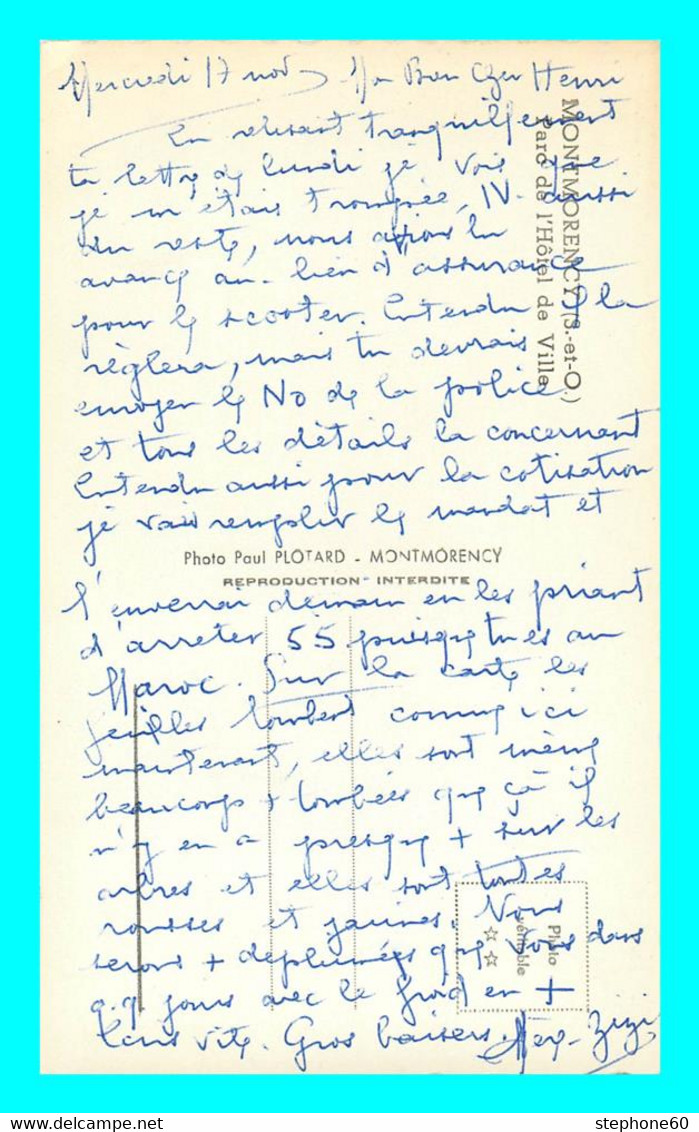 Mercredi 17 nov Mon Bien Cher Henri
En relisant tranquillement
ta lettre de lundi je vois que
je m'étais trompée, IV. aussi
du reste, nous avions lu
avance au lieu d'assurance
pour le scooter. Entendu Pla
règlera, mais tu devrais
envoyer le No de la police
et tous les détails la concernant
Entendu aussi pour la cotisation
je vais remplir le mandat et
l'enverrai demain en les priant
d'arreter 55 puisque tu es au
Maroc. Sur la carte les
feuilles tombent comme ici
maintenant, elles sont même
beaucoup + tombées que çà il
n'y en a presque + sur les
arbres et elles sont toutes
rousses et jaunes. Nous
serons + deplumées que vous dans
q.q jours avec le froid en +
tans vite. Gros baisers. Zizi
MONTMORENCY (S.-et-O.)
Parc de l'Hôtel de Ville
Photo Paul PLOTARD - MONTMORENCY
REPRODUCTION INTERDITE
Photo
véritable
stephone60